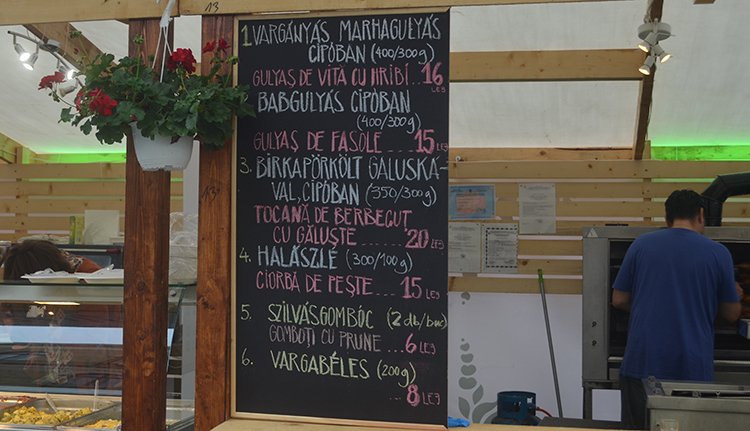 13
1. VARGÁNYÁS MARHAGULYÁS
CIPÓBAN (400/300g)
GULYAȘ DE VITA CU HRIBI 16
LEJ
BABGULYÁS CIPÓBAN
(400/300g)
GULYAȘ DE FASOLE ..... 15 LEJ
3. BIRKAPÖRKÖLT GALUSKA-
VAL, CIPÓBAN (350/300g)
TOCANĂ DE BERBECUT
CU GĂLUȘTE ....... 20 LEJ
4. HALÁSZLÉ (300/100g)
CIORBĂ DE PEȘTE ..... 15 LEJ
5. SZILVÁSGOMBÓC (2 db/buc)
GOMBOȚI CU PRUNE ... 6 LEJ
6. VARGABÉLES (200g)
.... 8 LEJ
13